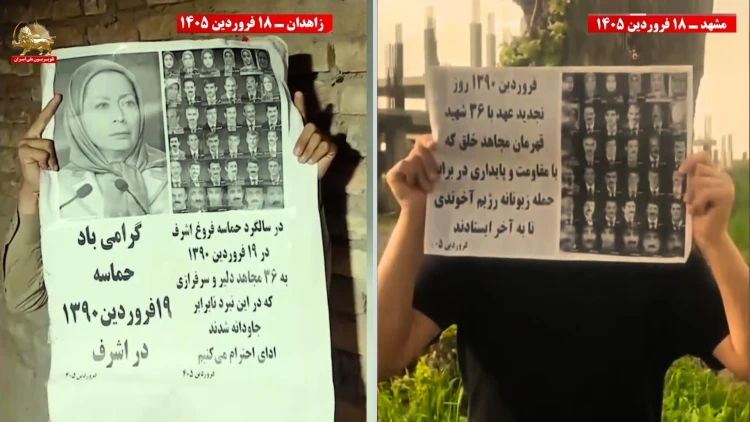 زاهدان ـ ۱۸ فروردین ۱۴۰۵
تلویزیون ملی ایران
گرامی باد
حماسه
۱۹فروردین۱۳۹۰
در اشرف
در سالگرد حماسه فروغ اشرف
در ۱۹ فروردین ۱۳۹۰
به ۳۶ مجاهد دلیر و سرفرازی
که در این نبرد نابرابر
جاودانه شدند
ادای احترام می‌کنیم
فروردین ۴۰۵
مشهد ـ ۱۸ فروردین ۱۴۰۵
فروردین ۱۳۹۰ روز
تجدید عهد با ۳۶ شهید
قهرمان مجاهد خلق که
با مقاومت و پایداری در برابر
حمله زبونانه رژیم آخوندی
تا به آخر ایستادند
فروردین ۴۰۵